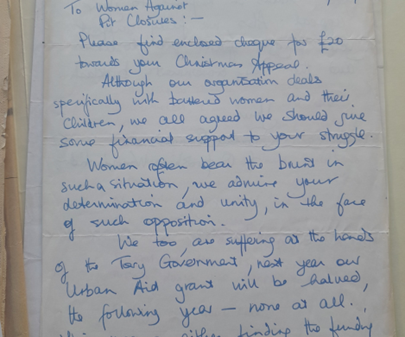 To Women Against
Pit Closures:—
Please find enclosed cheque for £20
towards your Christmas Appeal.
Although our organisation deals
specifically with battered women and their
Children, we all agreed we should give
some financial support to your struggle.
Women often bear the brunt in
such a situation, we admire your
determination and unity, in the face
of such opposition.
We too, are suffering at the hands
of the Tory Government, next year our
Urban Aid grant will be halved,
the following year — none at all.
either finding the funding